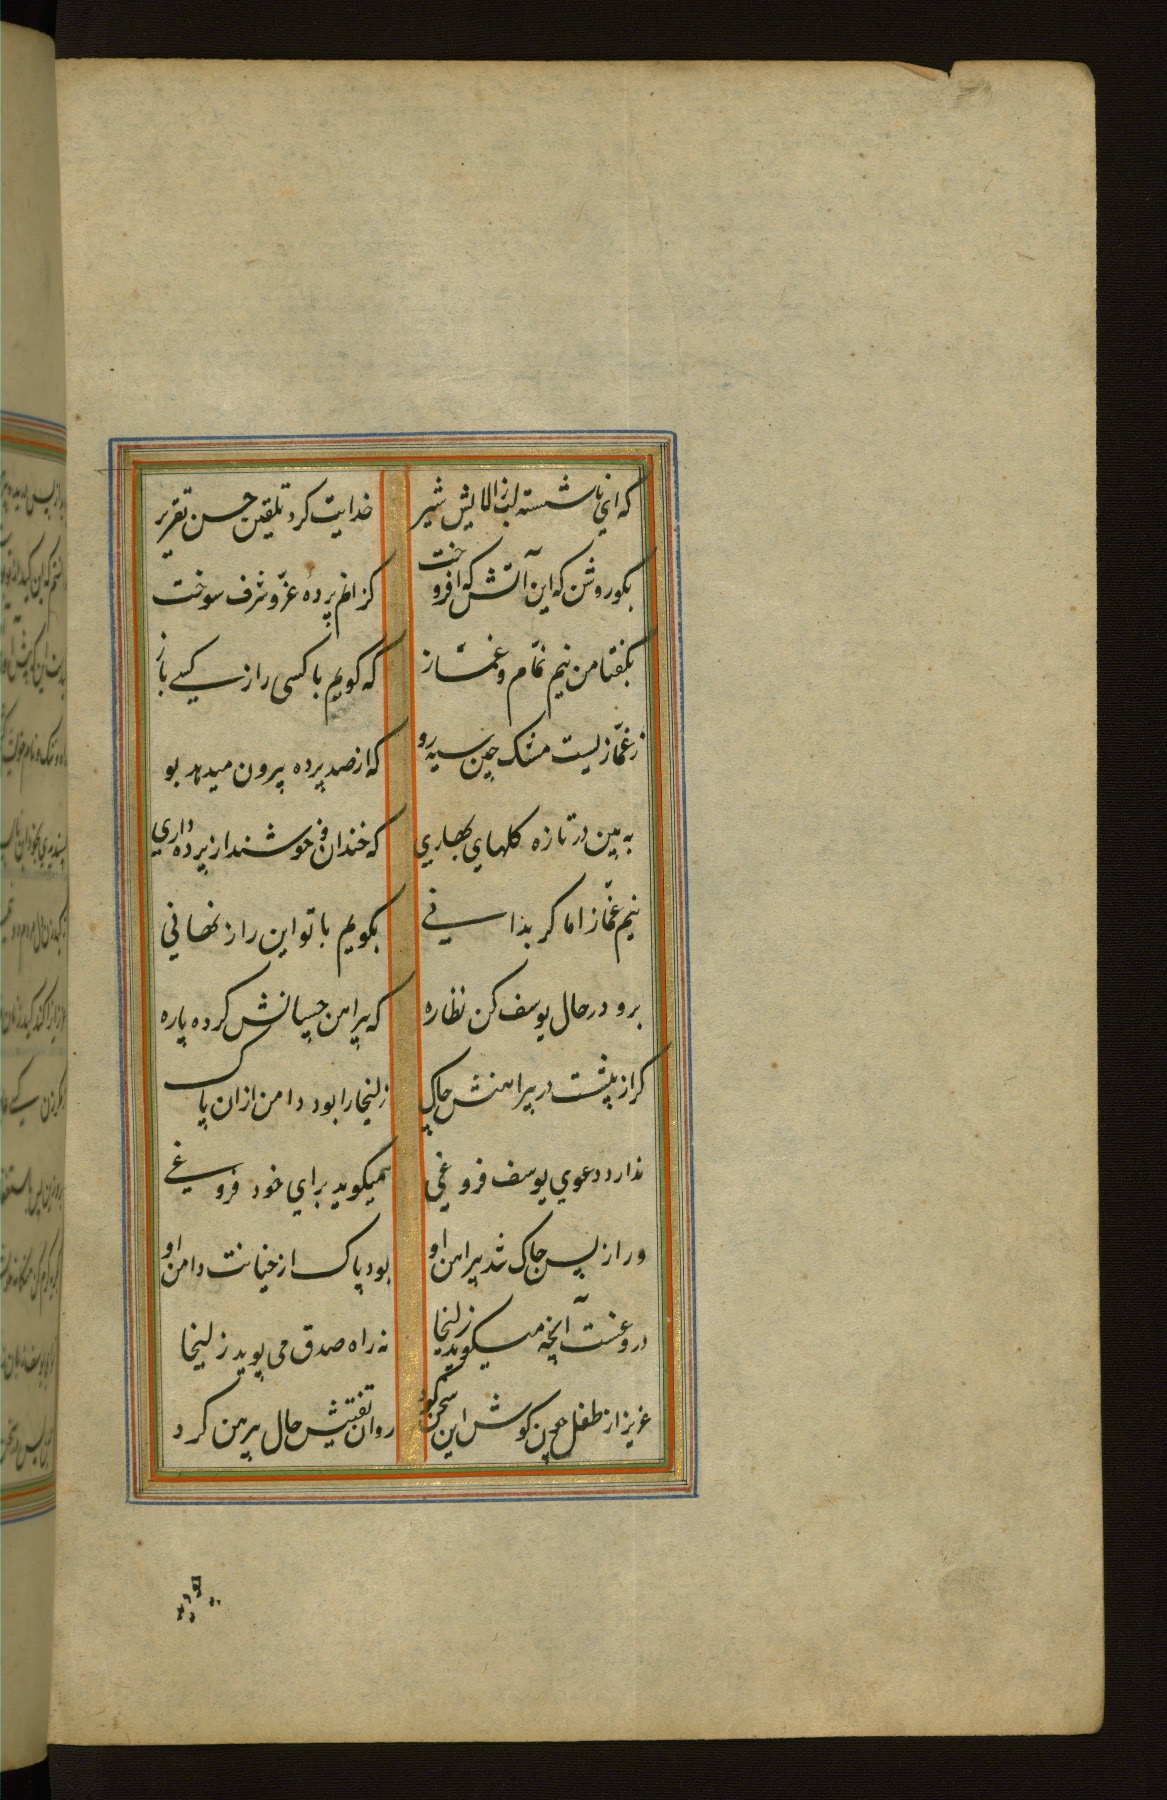 که ای ناشسته لب ز آلایش شیر خدایت کرد تلقین حسن تقریر
بکو روشن که این آتش که افروخت کزانم پرده عزّ و شرف سوخت
بکفتا من نیم نمّام و غمّاز که کویم با کسی راز کسی باز
ز غمّازیست مشک چین سیه رو که از صد پرده بیرون میدهد بو
به بین در تازه کلهای بهاری که خندان و خوشند از پرده داری
نیم غمّاز اما کر بدانی بکویم با تو این راز نهانی
برو در حال یوسف کن نظاره که پیراهن چسپانش کرده پاره
کر از پیشت در پیراهنش چاک زلیخا را بود دامن ازان پاک
ندارد دعوی یوسف فروغی همیکوید برای خود فروغی
ور از پس چاک شد پیراهن او بود پاک از خیانت دامن او
دروغست آنچه میکوید زلیخا نه راه صدق می پوید زلیخا
عزیز از طفل چون کوش این سخن کرد روان تفتیش حال پیرهن کرد